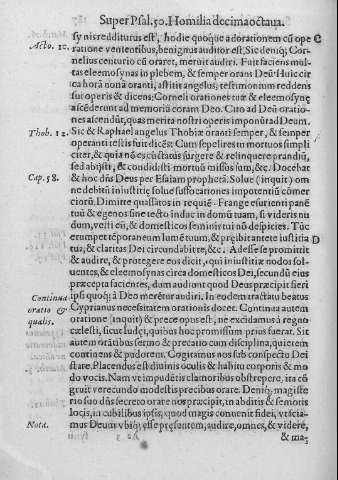 Super Psal. 50. Homilia decimaoctaua.
sy nis redditurus est, hodie quoque adorationem cũ ope C
Actο. 10. ratione venientibus, benignus auditor est, Sic deniq; Cor-
nelius centurio cũ oraret, meruit audiri. Fuit faciens mul-
tas eleemosynas in plebem, & semper orans Deũ. Huic cir
ca horã nonã oranti, astitit angelus, testimonium reddens
sui operis & dicens: Corneli orationes tuæ & eleemosynę
ascẽderunt ad memoriã coram Deo. Cito ad Deũ oratio-
nes ascendũt, quas merita nostri operis imponũt ad Deum.
Thob. 12. Sic & Raphael angelus Thobiæ oranti semper, & semper
operanti testis fuit dicẽs: Cum sepelires in mortuos simpli
citer, & quia nõ es cũctatus surgere & relinquere prandiũ,
sed abijsti, & condidisti mortuũ missus sum, &c. Docebat
Cap. 58. & hoc dñs Deus per Esaiam prophetã. Solue (inquit) om
ne debitũ iniustitię solue suffocationes impotentiũ cõmer
ciorũ. Dimitte quassatos in requiẽ. Frange esurienti panẽ
tuũ & egenos sine tecto induc in domũ tuam, si videris nu
dum, vesti eũ, & domesticos seminis tui nõ despicies. Tũc
erumpet tẽporaneum lumẽ tuum, & pręibit ante te iustitia D
tua, & claritas Dei circundabit te, &c. Adesse se promittit
& audire, & protegere eos dicit, qui iniustitiæ nodos sol-
uentes, & eleemosynas circa domesticos Dei, secundũ eius
præcepta facientes, dum audiunt quod Deus præcipit fieri
Continua ipsi quoq; à Deo merẽtur audiri. In eodem tractatu beatus
oratio & Cyprianus necessitatem orationis docet. Continua autem
qualis. oratione (inquit) & prece opus est, ne excidamus à regno
cælesti, sicut Iudęi, quibus hoc promissum prius fuerat. Sit
autem orãtibus sermo & precatio cum disciplina, quietem
continens & pudorem. Cogitamus nos sub conspectu Dei
stare. Placendus est diuinis oculis & habitu corporis & mo
do vocis. Nam vt impudẽtis clamoribus obstrepere, ita cõ
gruit verecundo modestis precibus orare. Deniq; magiste
rio suo dñs secreto orare nos præcipit, in abditis & semotis
locis, in cubilibus ipsis, quod magis conuenit fidei, vt scia-
Nota. mus Deum vbiq; esse præsentem, audire, omnes, & vidére,
& ma-